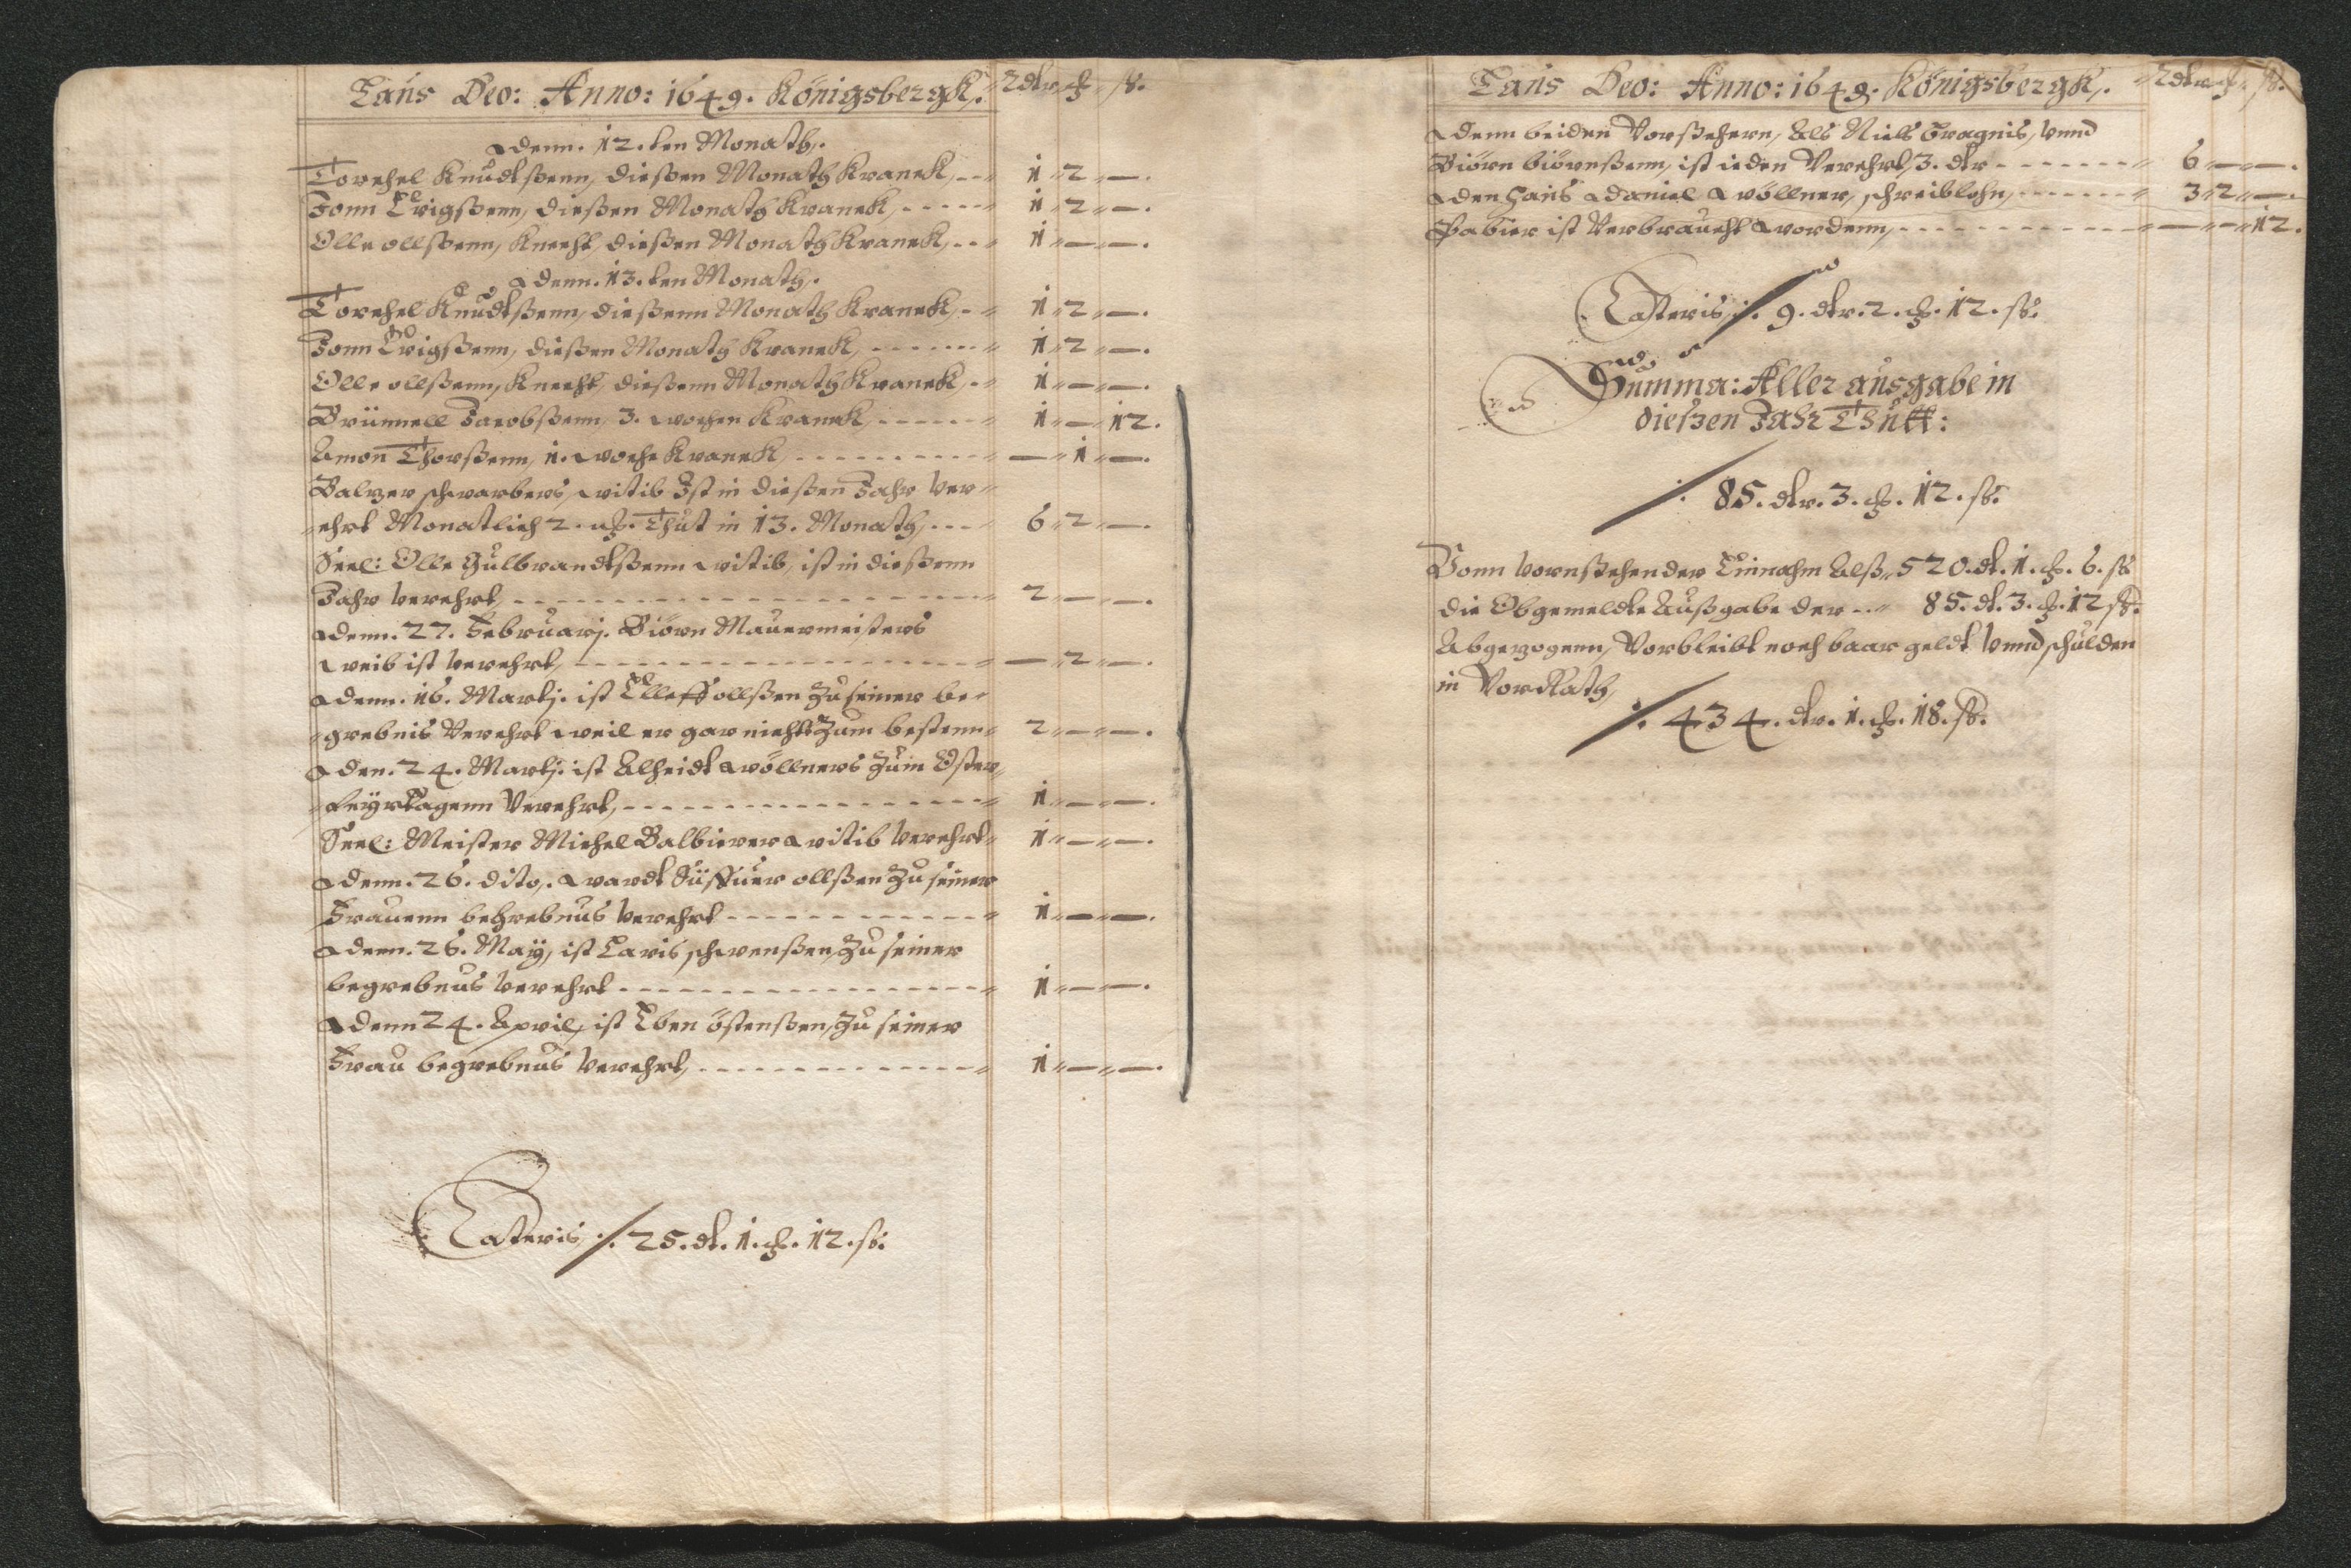 Laus Deo: Anno: 1649. Königsbergk. Rdtr. ß.
Denn. 12. ten Monath,.
Torchel Knudtßenn, dießen Monath Kranck, ---" 1 " 2 " — .
Jonn Erigßenn, dießen Monath Kranck, ----" 1 " 2 " — .
Olle ollßenn, Knecht, dießen Monath Kranck, --" 1 " — " — .
Denn. 13. ten Monath,.
Torchel Knudtßenn, dießenn Monath Kranck, --" 1 " 2 " — .
Jonn Erigßenn, dießen Monath Kranck, ------" 1 " 2 " — .
Olle ollßenn, Knecht, dießenn Monath Kranck, --" 1 " — " — .
Brünnell Jacobßenn, 3. wochen Kranck, ------" 1 " — " 12.
Amon Thorßenn, 1. woche Kranck, ----------" — " 1 " — .
Balzer schwarbers, witib Ist in dießen Jahr Ver="
"ehrt Monatlich 2. Thut in 13. Monath, ---" 6 " 2 " — .
Seel: Olle Gulbrandtßenn witib, ist in dießenn
Jahr Verehrt, --------------------" 2 " — " — .
Denn. 27. Februarj. Biörn Mauermeisters
weib ist Verehrt, ------------------" — " 2 " — .
Denn. 16. Martj. ist Elleff ollßen Zu seiner be="
"grebnis Verehrt weil er gar nichts Zum bestenn" 2 " — " — .
Den. 24. Martj. ist Alheidt Wöllners Zum Oster"
"Feyrtagenn Verehrt, ----------------" 1 " — " — .
Seel: Meister Michel Balbierer witib Verehrt" 1 " — " — .
Denn. 26. dito,. wardt ollßen Zu seiner
Frauenn begrebnus Verehrt ------------" 1 " — " — .
Denn. 26. May, ist Laris schwenßen, Zu seiner
begrebnus Verehrt ------------------" 1 " — " — .
Denn 24. April, ist Eben östenßen, Zu seiner
Frau begrebnus Verehrt, --------------" 1 " — " — .
Lateris ./. 25. dt. 1. 12. ß.
Laus Deo: Anno: 1649. Königsbergk. Rdtr. ß.
Denn beiden Vorstehern, Als Niels Tragnis, Vnnd
Biörn biörnßenn, ist ieden Verehrt, 3. dtr --------" 6 " — " — .
Den Hans Daniel Wöllner, schreiblohn, ------" 3 " 2 " — .
Pabier ist Verbraucht wordenn, --------------" — " — " 12.
Lateris, ./. 9. dtr. 2. 12. ß.
Summa: Aller ausgabe in
dießen Jahr Thutt:
./. 85. dtr. 3. 12. ß.
Vonn Vornstehender Einnahm Alß" 520. dt. 1. 6. ß
die Obgemeldte Außgabe der --" 85. dt. 3. 12 ß.
Abgezogenn, Vorbleibt noch baar geldt Vnnd schulden
in Vor Rath,
./. 434. dtr. 1. 18. ß.